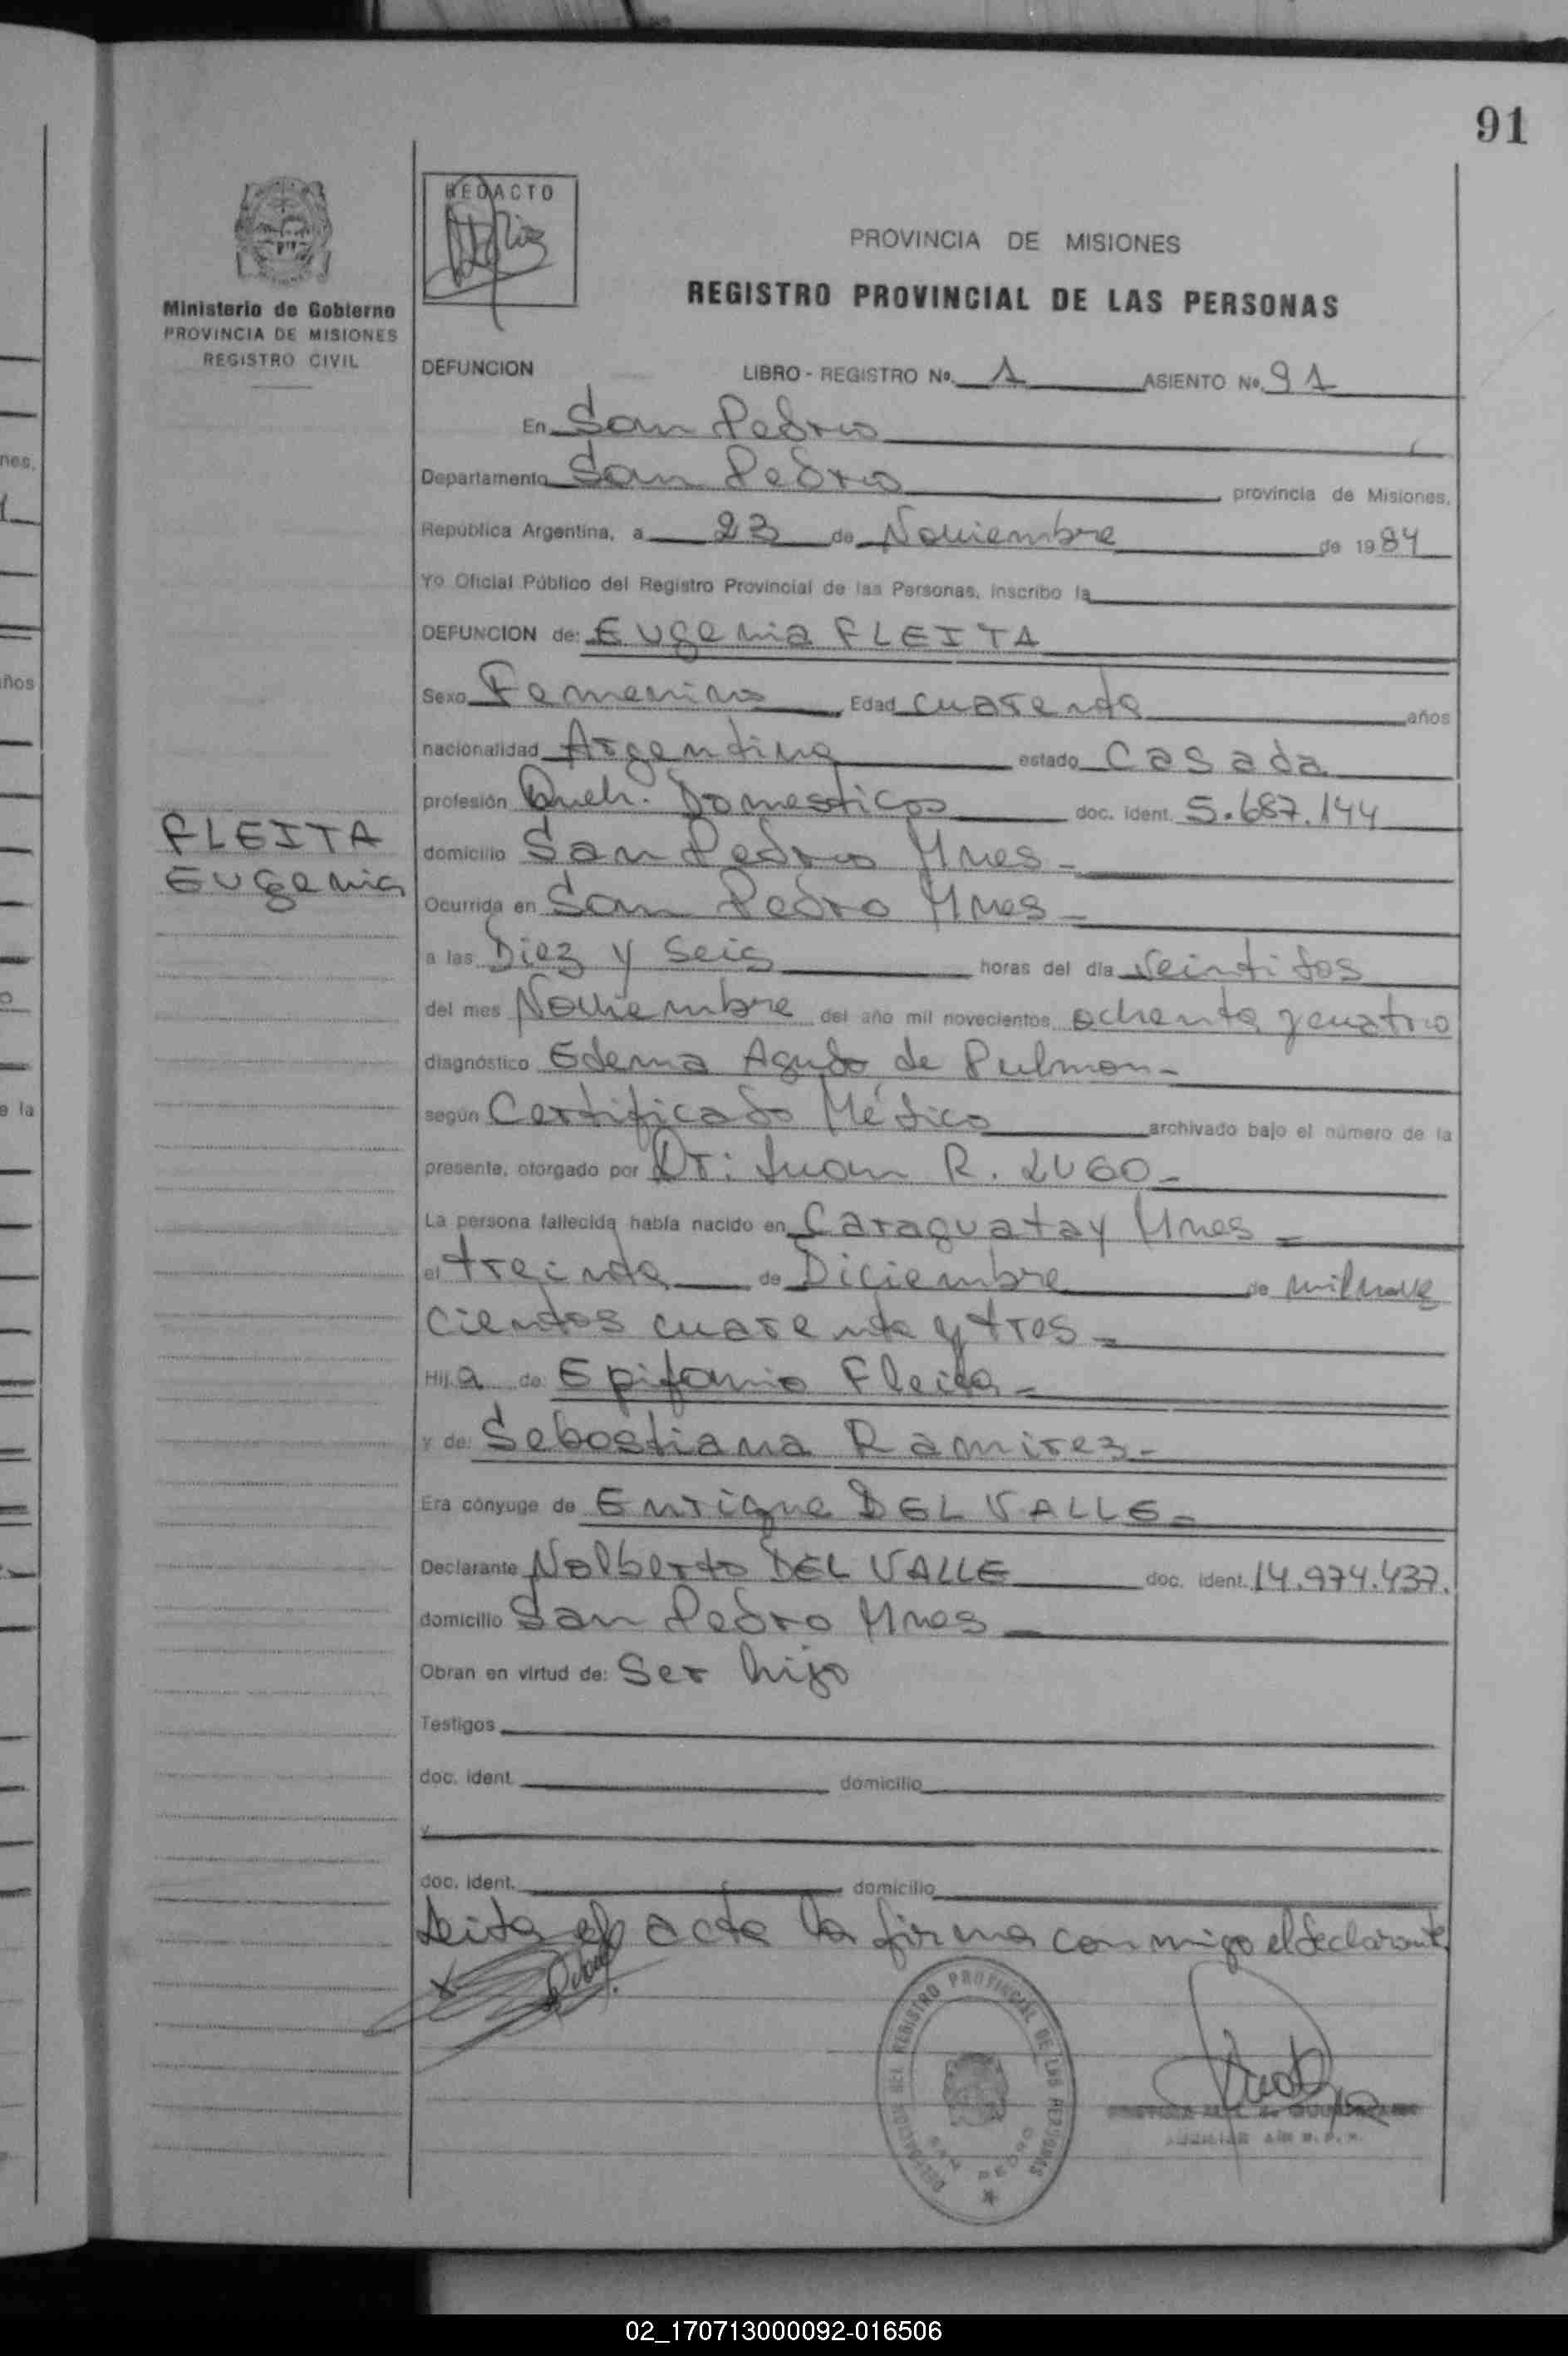 91
REDACTO
PROVINCIA DE MISIONES
REGISTRO PROVINCIAL DE LAS PERSONAS
Ministerio de Gobierno
PROVINCIA DE MISIONES
REGISTRO CIVIL
DEFUNCION LIBRO - REGISTRO No. 1 ASIENTO No. 91
En San Pedro
Departamento San Pedro provincia de Misiones,
República Argentina, a 23 de Noviembre de 1984
Yo Oficial Público del Registro Provincial de las Personas, inscribo la
DEFUNCION de: Eugenia FLEITA
Sexo Femenino Edad cuarenta años
nacionalidad Argentina estado Casada
profesión Queh. Domesticos doc. ident. 5.687.144
FLEITA
Eugenia
domicilio San Pedro Mnes -
Ocurrida en San Pedro Mnes -
a las Diez y seis horas del día veintidos
del mes Noviembre del año mil novecientos ochenta y cuatro
diagnóstico Edema Agudo de Pulmon -
según Certificado Médico archivado bajo el número de la
presente, otorgado por Dr: Juan R. LUGO -
La persona fallecida había nacido en Caraguatay Mnes -
el treinta de Diciembre de mil nove
cientos cuarenta y tres -
Hij a de: Epifanio Fleita -
y de: Sebastiana Ramirez -
Era cónyuge de Enrique DEL VALLE -
Declarante Nolberto DEL VALLE doc. ident. 14.974.437.
domicilio San Pedro Mnes
Obran en virtud de: Ser hijo
Testigos
doc. ident. domicilio
y
doc. ident. domicilio
Leida el acta la firma conmigo el declarante
DELEGACION DEL REGISTRO PROVINCIAL DE LAS PERSONAS
SAN PEDRO
nes,
años
e la
02_170713000092-016506